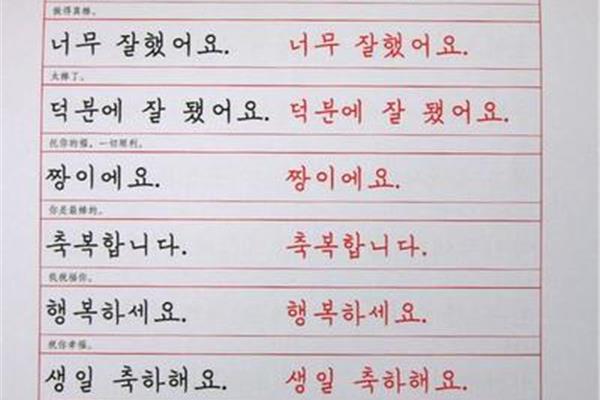 做得真棒。
너무 잘했어요. 너무 잘했어요.
太棒了。
덕분에 잘 됐어요. 덕분에 잘 됐어요.
托你的福，一切顺利。
짱이에요. 짱이에요.
你是最棒的。
축복합니다. 축복합니다.
我祝福你。
행복하세요. 행복하세요.
祝你幸福。
생일 축하해요. 생일 축하해요.